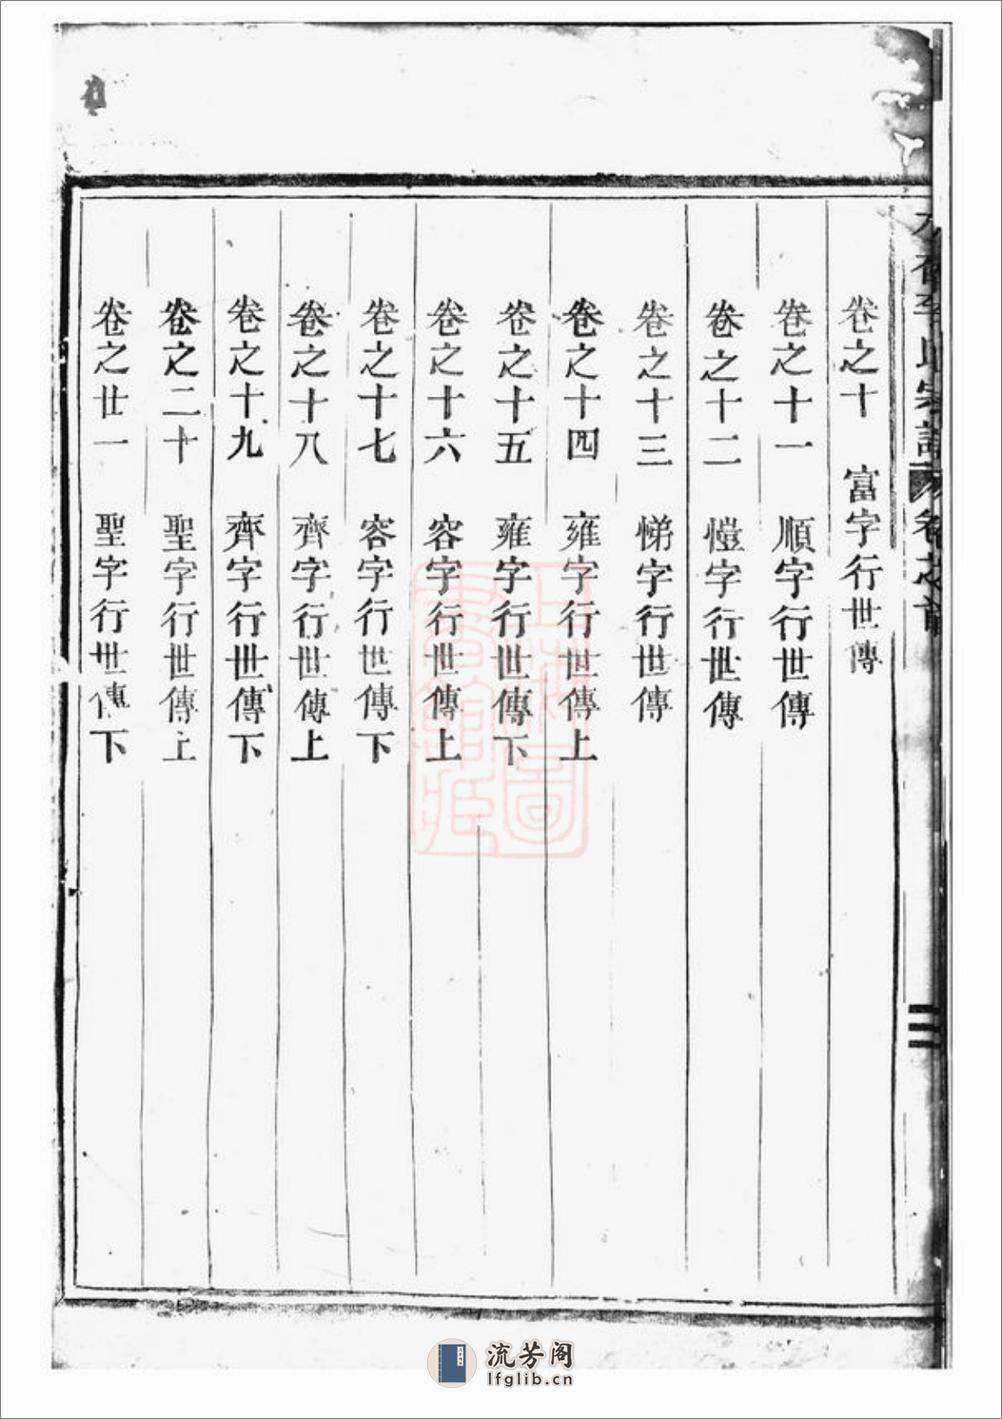 李氏宗譜 卷之首
卷之十 富字行世傳
卷之十一 順字行世傳
卷之十二 愷字行世傳
卷之十三 悌字行世傳
卷之十四 雍字行世傳上
卷之十五 雍字行世傳下
卷之十六 容字行世傳上
卷之十七 容字行世傳下
卷之十八 齊字行世傳上
卷之十九 齊字行世傳下
卷之二十 聖字行世傳上
卷之廿一 聖字行世傳下
三
流芳阁
lfglib.cn